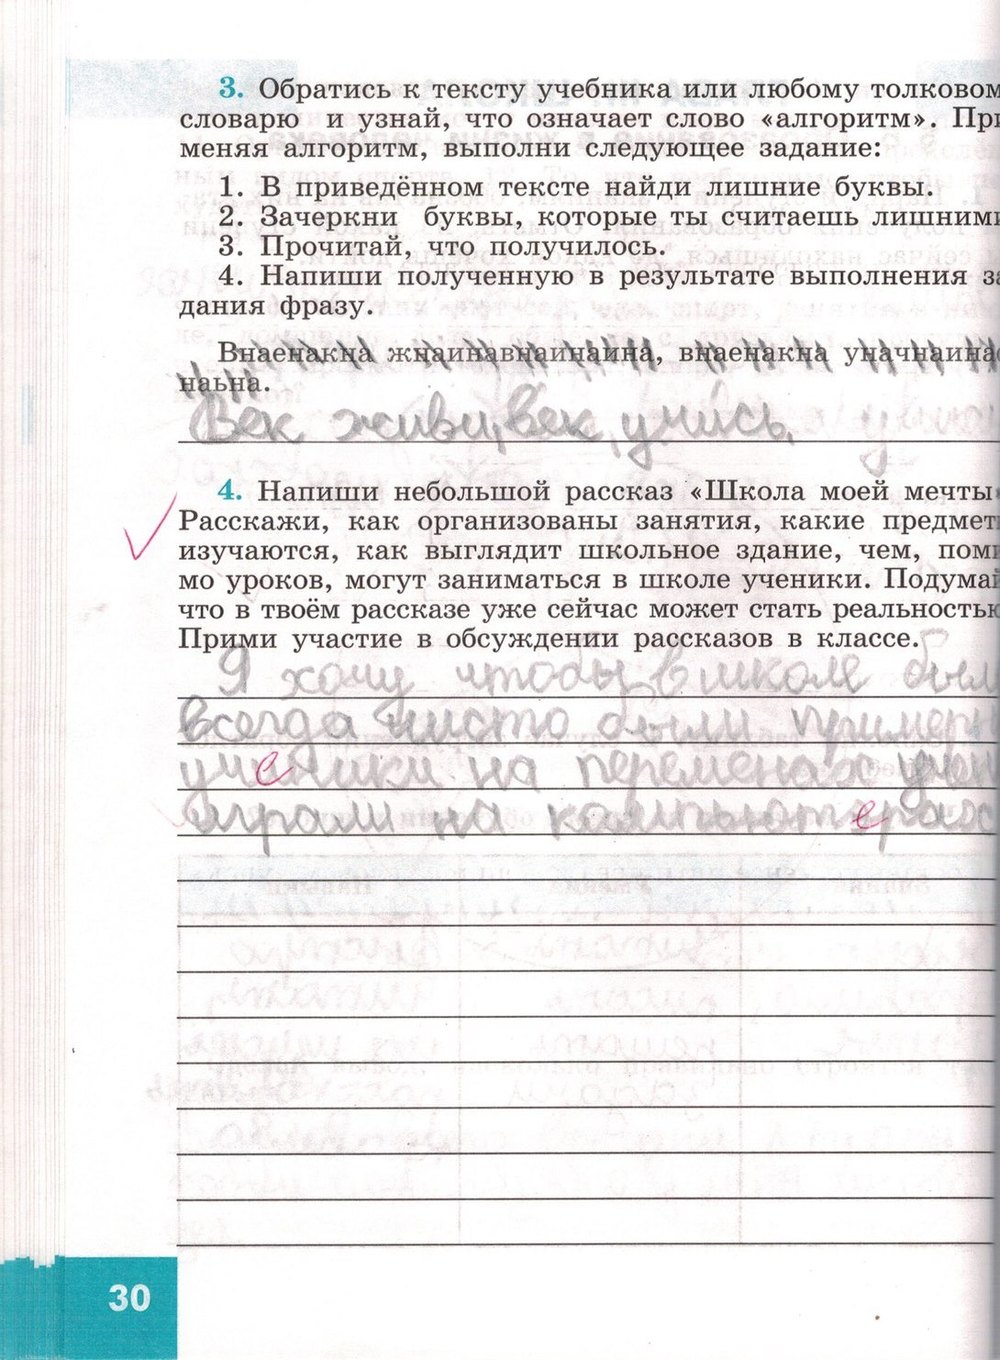 3. Обратись к тексту учебника или любому толковом
словарю и узнай, что означает слово «алгоритм». При
меняя алгоритм, выполни следующее задание:
1. В приведённом тексте найди лишние буквы.
2. Зачеркни буквы, которые ты считаешь лишними
3. Прочитай, что получилось.
4. Напиши полученную в результате выполнения за
дания фразу.
Внаенакна жнаинавнаинаина, внаенакна уначнаинас
наьна.
Век живи, век учись.
4. Напиши небольшой рассказ «Школа моей мечты»
Расскажи, как организованы занятия, какие предмет
изучаются, как выглядит школьное здание, чем, поми
мо уроков, могут заниматься в школе ученики. Подумай
что в твоём рассказе уже сейчас может стать реальностью
Прими участие в обсуждении рассказов в классе.
Я хочу чтобы в школе был
всегда чисто были пример
ученики на переменах учен
играли на компьютерах
30